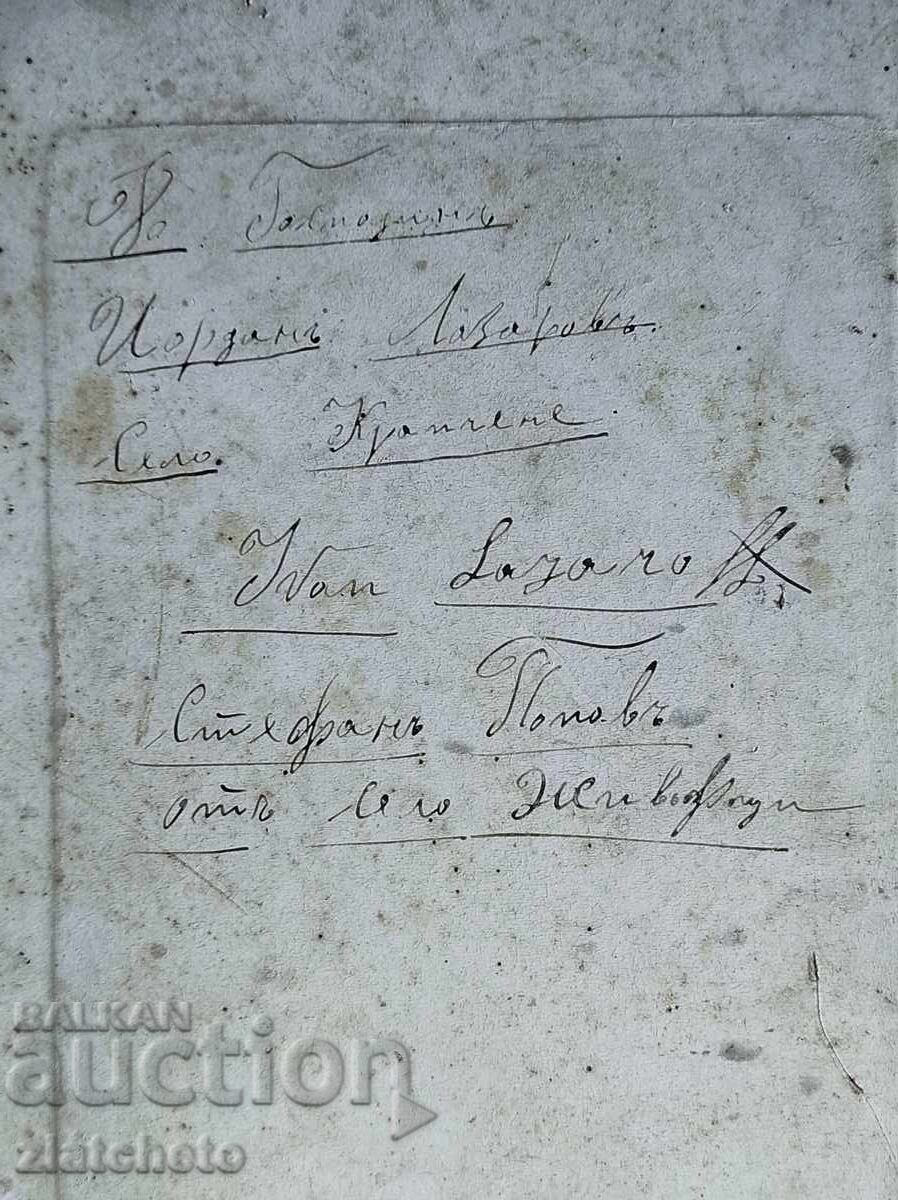 Господинъ
Йорданъ Лазаровъ.
Село. Крапчене.
Иван Lazaro
Стефанъ Поповъ
отъ село Живовци
BALKAN
auction
zlatchoto